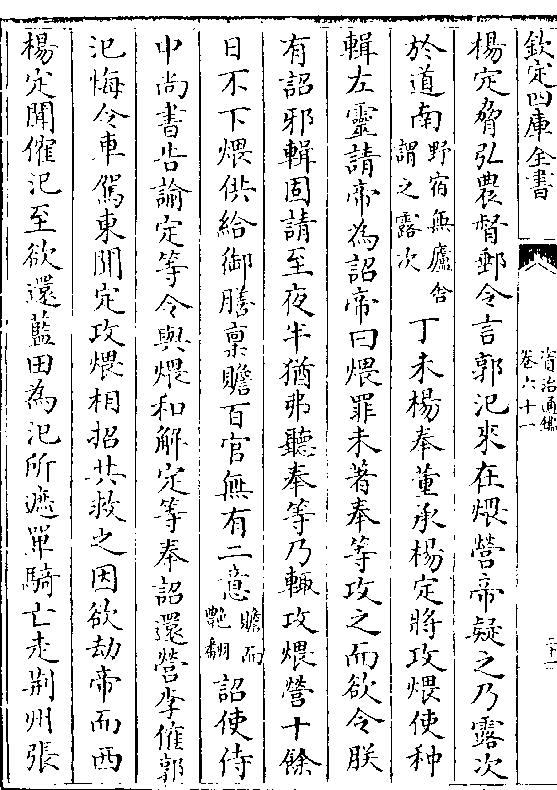 欽定四庫全書
資治通鑑
卷六十一
二十一
楊定脅弘農督郵令言郭汜來在煨營帝疑之乃露次
於道南野宿無廬舍謂之露次丁未楊奉董承楊定將攻煨使种
輯左靈請帝為詔帝曰煨罪未著奉等攻之而欲令朕
有詔邪輯固請至夜半猶弗聽奉等乃輙攻煨營十餘
日不下煨供給御膳稟贍百官無有二意贍而豔翻詔使侍
中尚書告諭定等令與煨和解定等奉詔還營李傕郭
汜悔令車駕東聞定攻煨相招共救之因欲劫帝而西
楊定聞傕汜至欲還藍田為汜所遮單騎亡走荆州張